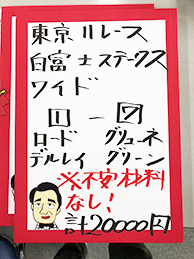 東京11レース
白富士ステークス
ワイド
1 －
ロード グリューネ
デルレイ グリーン
※不安材料
なし！
計20000円